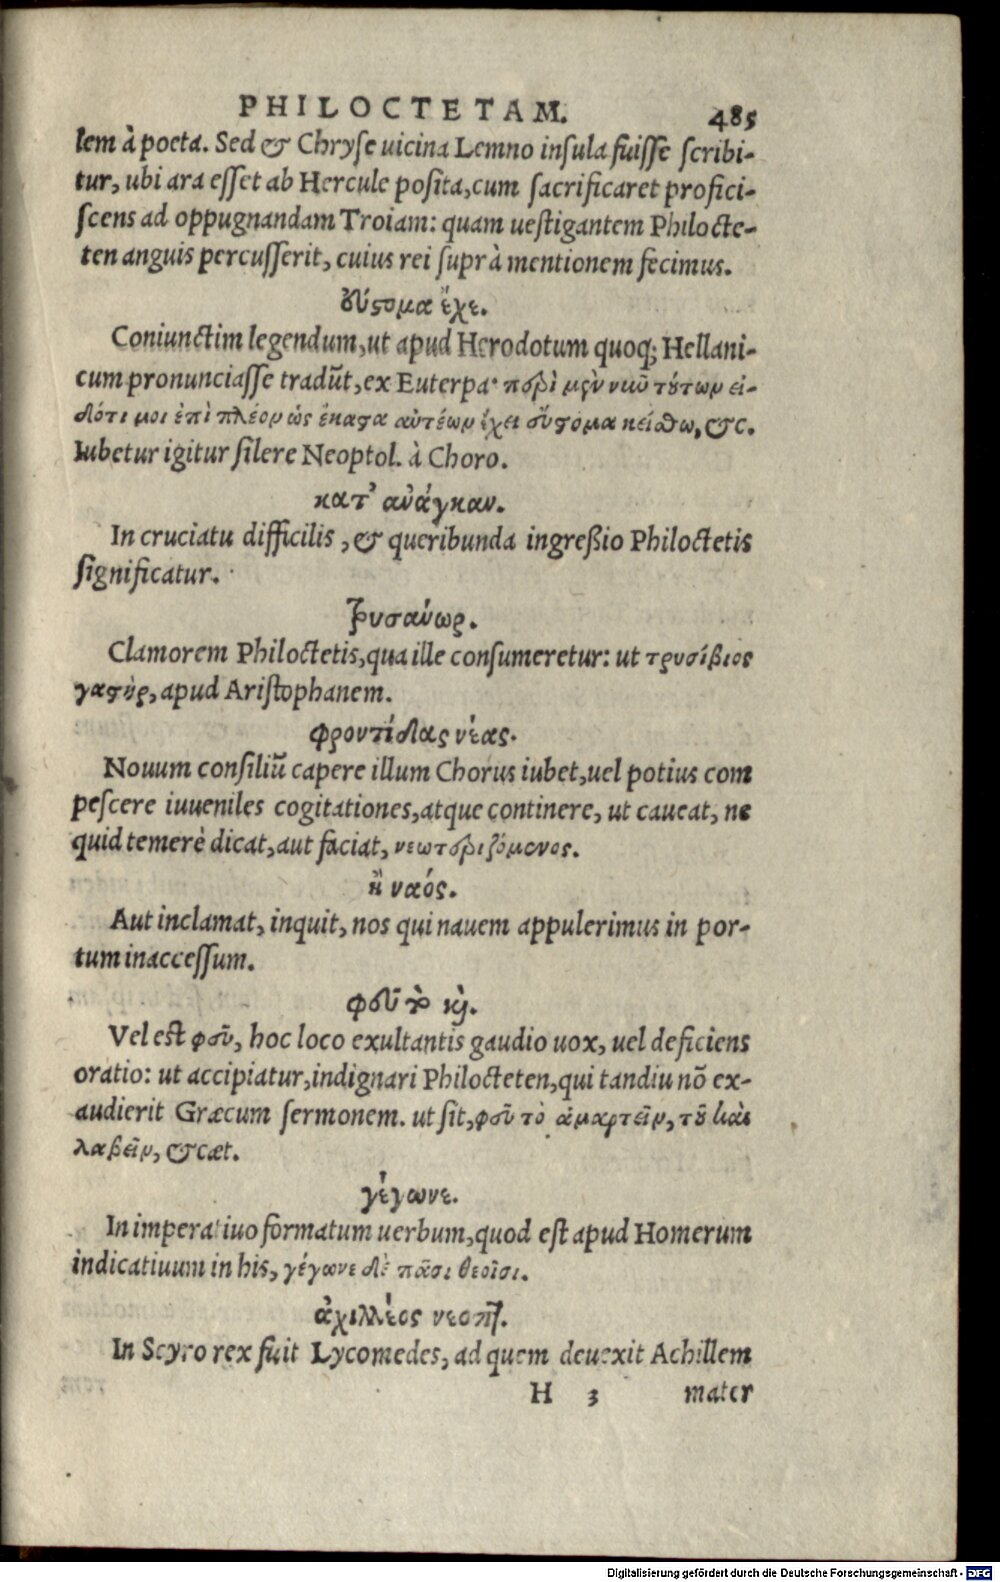 PHILOCTETAM. 485
lem à poeta. Sed & Chryse uicina Lemno insula fuisse scribi-
tur, ubi ara esset ab Hercule posita, cum sacrificaret profici-
scens ad oppugnandam Troiam: quam uestigantem Philocte-
ten anguis percusserit, cuius rei suprà mentionem fecimus.
εὔστομα ἔχε.
Coniunctim legendum, ut apud Herodotum quoq; Hellani-
cum pronunciasse tradūt, ex Euterpa· περὶ μὲν νῦν τούτων εἰ-
δότι μοι ἐπὶ πλέον ὡς ἕκαστα αὐτέων ἔχει εὔστομα κείσθω, &c.
Iubetur igitur silere Neoptol. à Choro.
κατ’ ἀνάγκαν.
In cruciatu difficilis, & queribunda ingreßio Philoctetis
significatur.
τρυσάνωρ.
Clamorem Philoctetis, qua ille consumeretur: ut τρυσίβιος
γαστὴρ, apud Aristophanem.
φροντίδας νέας.
Nouum consiliū capere illum Chorus iubet, uel potius com
pescere iuueniles cogitationes, atque continere, ut caueat, ne
quid temerè dicat, aut faciat, νεωτεριζόμενος.
ἢ ναός.
Aut inclamat, inquit, nos qui nauem appulerimus in por-
tum inaccessum.
φεῦ τὸ καὶ.
Vel est φεῦ, hoc loco exultantis gaudio uox, uel deficiens
oratio: ut accipiatur, indignari Philocteten, qui tandiu nō ex-
audierit Græcum sermonem. ut sit, φεῦ τὸ ἁμαρτεῖν, τοῦ καὶ
λαβεῖν, & cæt.
γέγωνε.
In imperatiuo formatum uerbum, quod est apud Homerum
indicatiuum in his, γέγωνε δὲ πᾶσι θεοῖσι.
ἀχιλλέος νεοπτ.
In Scyro rex fuit Lycomedes, ad quem deuexit Achillem
H 3 mater
Digitalisierung gefördert durch die Deutsche Forschungsgemeinschaft - DFG